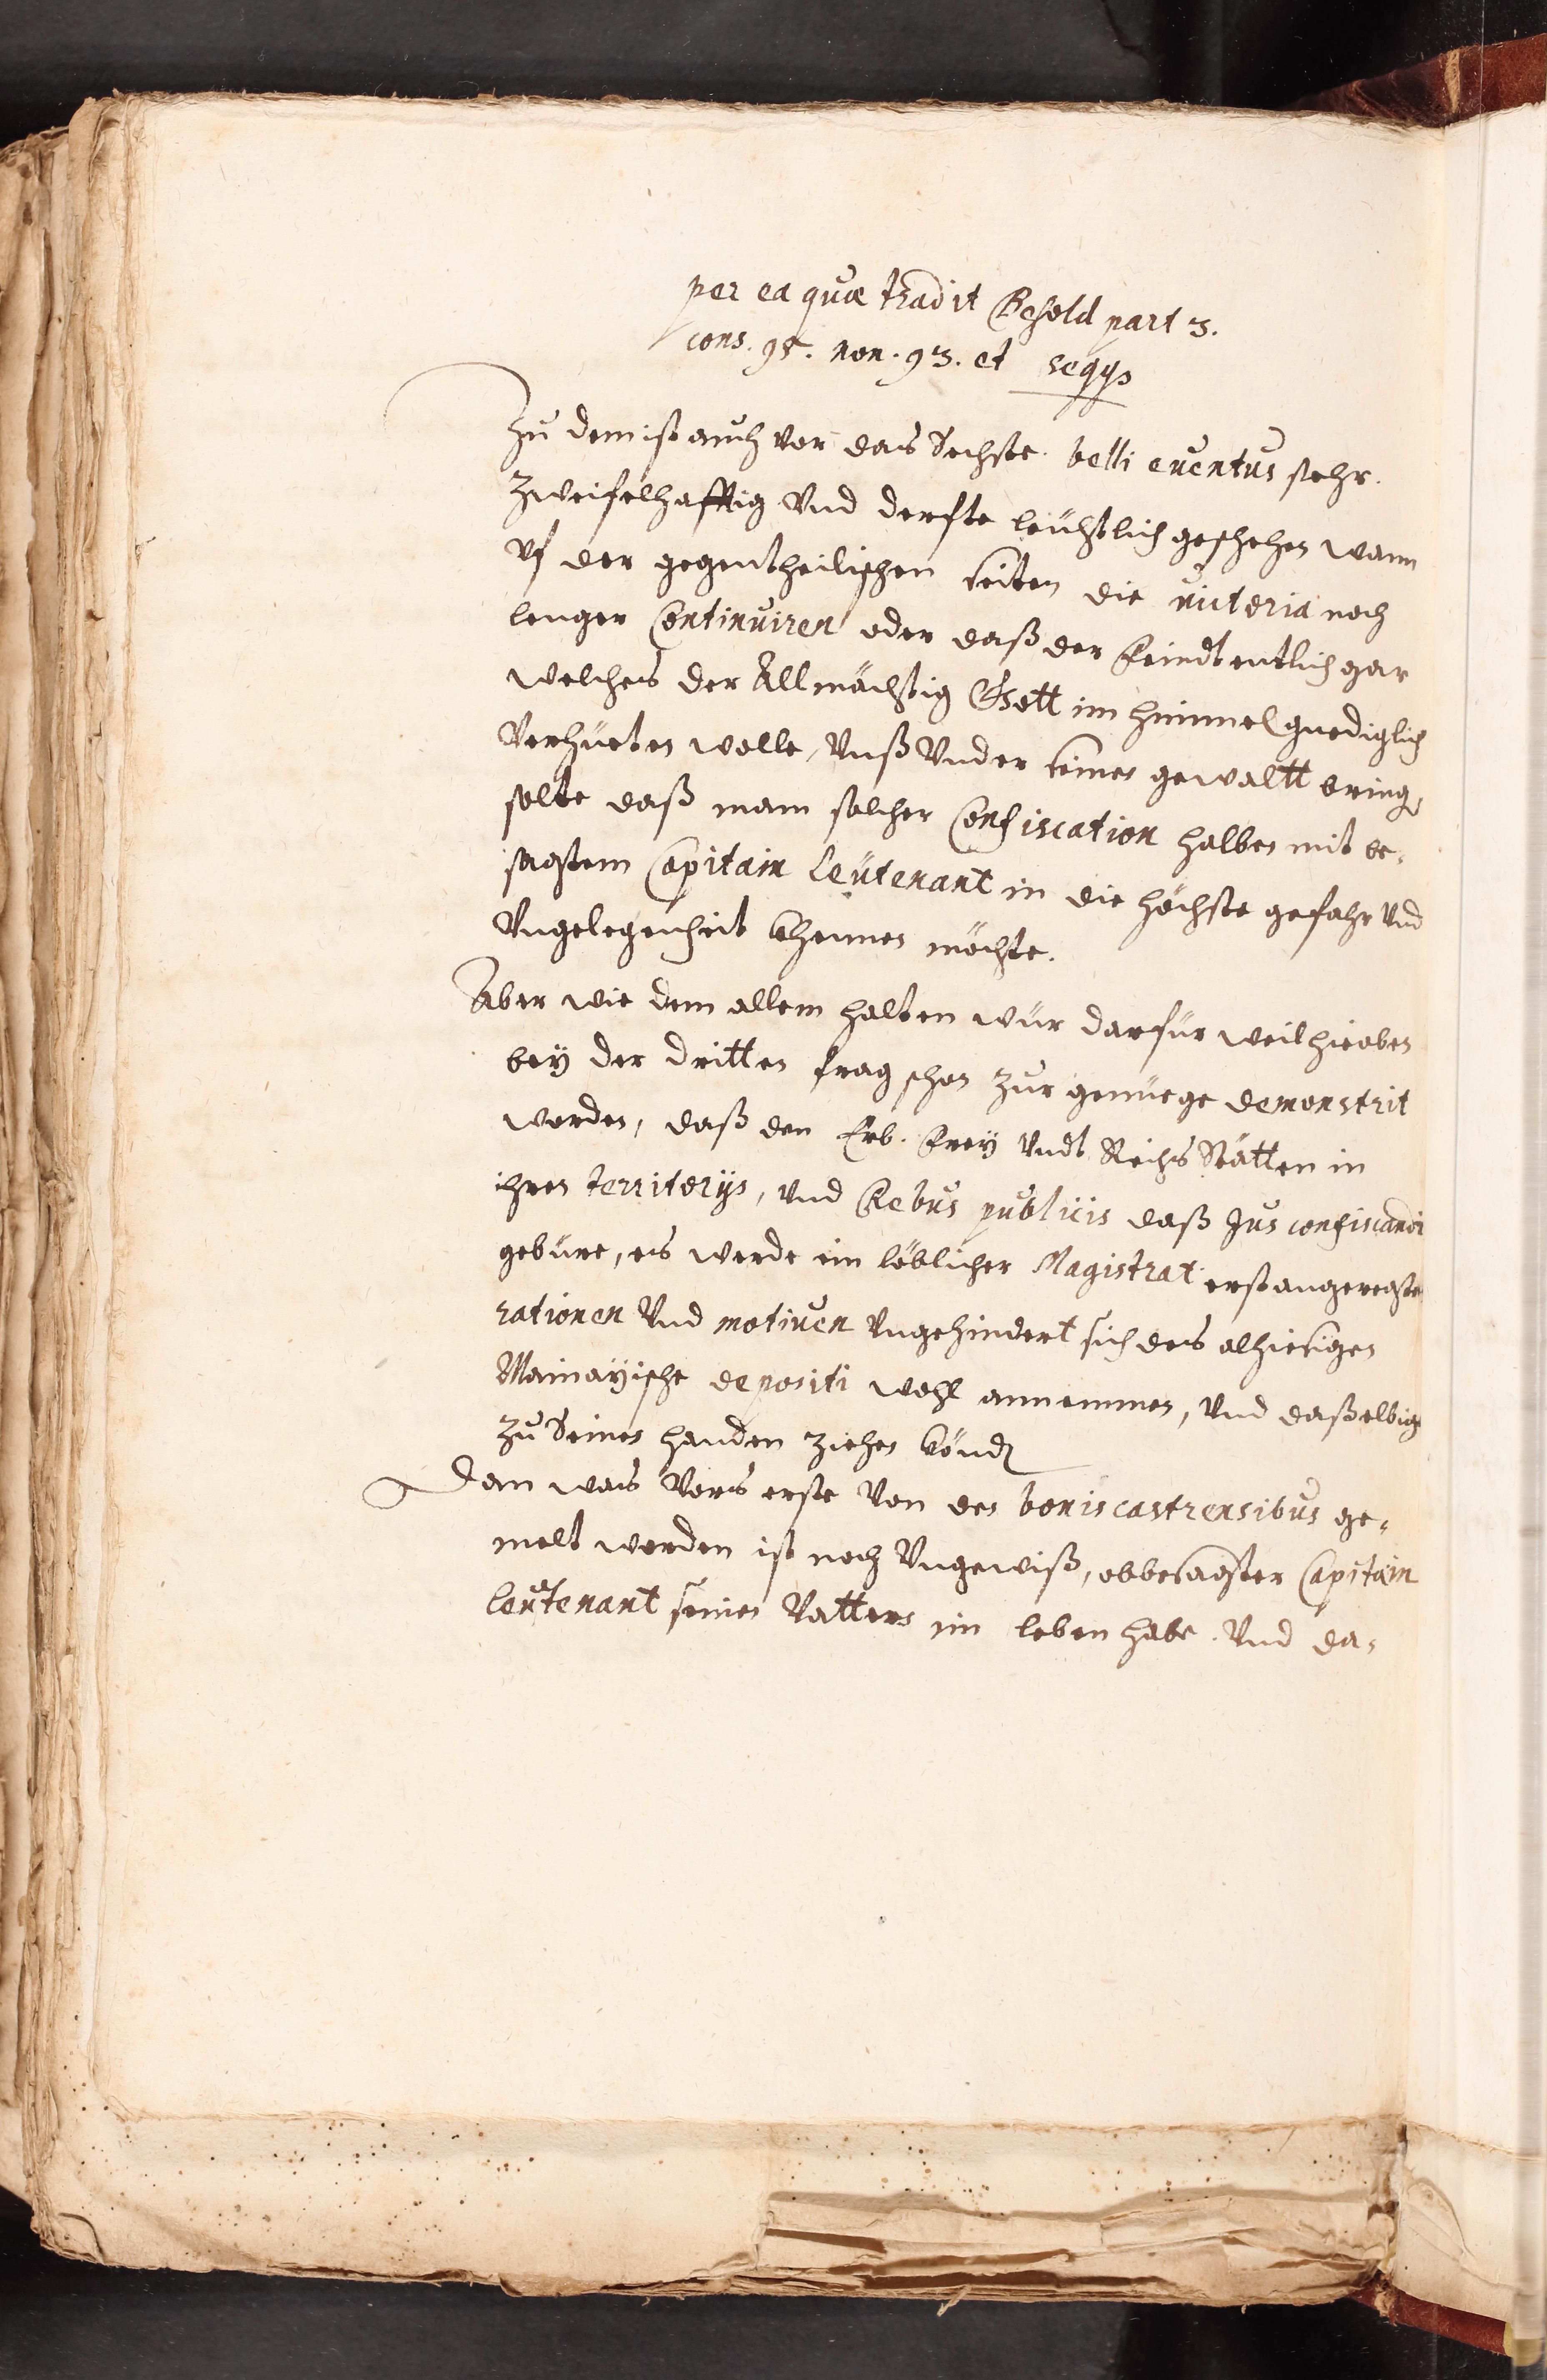 per ea quæ tradit Besold part 3.
cons. 95. non. 93. et seqqs
Zu dem ist auch vor das Sechste. belli euentus sehr.
Zweifelhafftig Vnd derfte leüchtlich geschehen wann
Vf der gegentheilischen seiten die victoria noch
lenger Continuiren oder daß der feindt entlich gar
welches der Allmächtig Gott im himmel gnediglich
Verhüeten wolle, Vnß Vnder seinen gewaltt bring
solte daß mann solcher Confiscation halben mit be,
sagtem Capitain Leütenant in die höchste gefahr Vnd
Vngelegenheit khommen möchte.
Aber wie dem allem halten wür darfür weil hieoben
bey der dritten frag schon zur genüege demonstrit
worden, daß den Erb. frey Vndt Reichs Stätten in
ihren territorijs, Vnd Rebus publicis daß Jus confiscandi
gebüre, es werde ein löblicher Magistrat erst angeregte
rationen Vnd motiuen Vngehindert sich des alhiesigen
Mainayische depositi wohl annemmen, Vnd daßelbige
zu Seinen handen ziehen könd
Dan was Vors erste Von den bonis castrensibus ge,
melt worden ist noch Vngewiß, ob besagter Capitain
Leütenant seinen Vatter im leben habe. Vnd da,